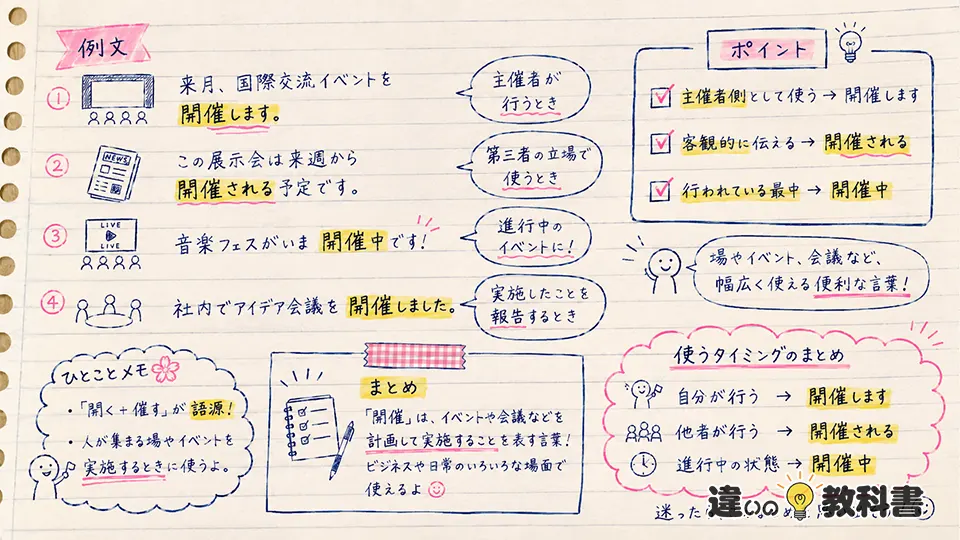 例文
① 来月、国際交流イベントを
開催します。
主催者が
行うとき
② NEWS
この展示会は来週から
開催される予定です。
第三者の立場で
使うとき
③ LIVE
LIVE
音楽フェスがいま 開催中です!
進行中の
イベントに!
④ 社内でアイデア会議を 開催しました。
実施したことを
報告するとき
ポイント
主催者側として使う → 開催します
客観的に伝える → 開催される
行われている最中 → 開催中
場やイベント、会議など、
幅広く使える便利な言葉!
ひとことメモ
・「開く+催す」が 語源!
・人が集まる場やイベントを
実施するときに使うよ。
まとめ
「開催」は、イベントや会議などを
計画して実施することを表す言葉!
ビジネスや日常のいろいろな場面で
使えるよ
使うタイミングのまとめ
自分が行う → 開催します
他者が行う → 開催される
進行中の状態 → 開催中
迷った
違いの教科書